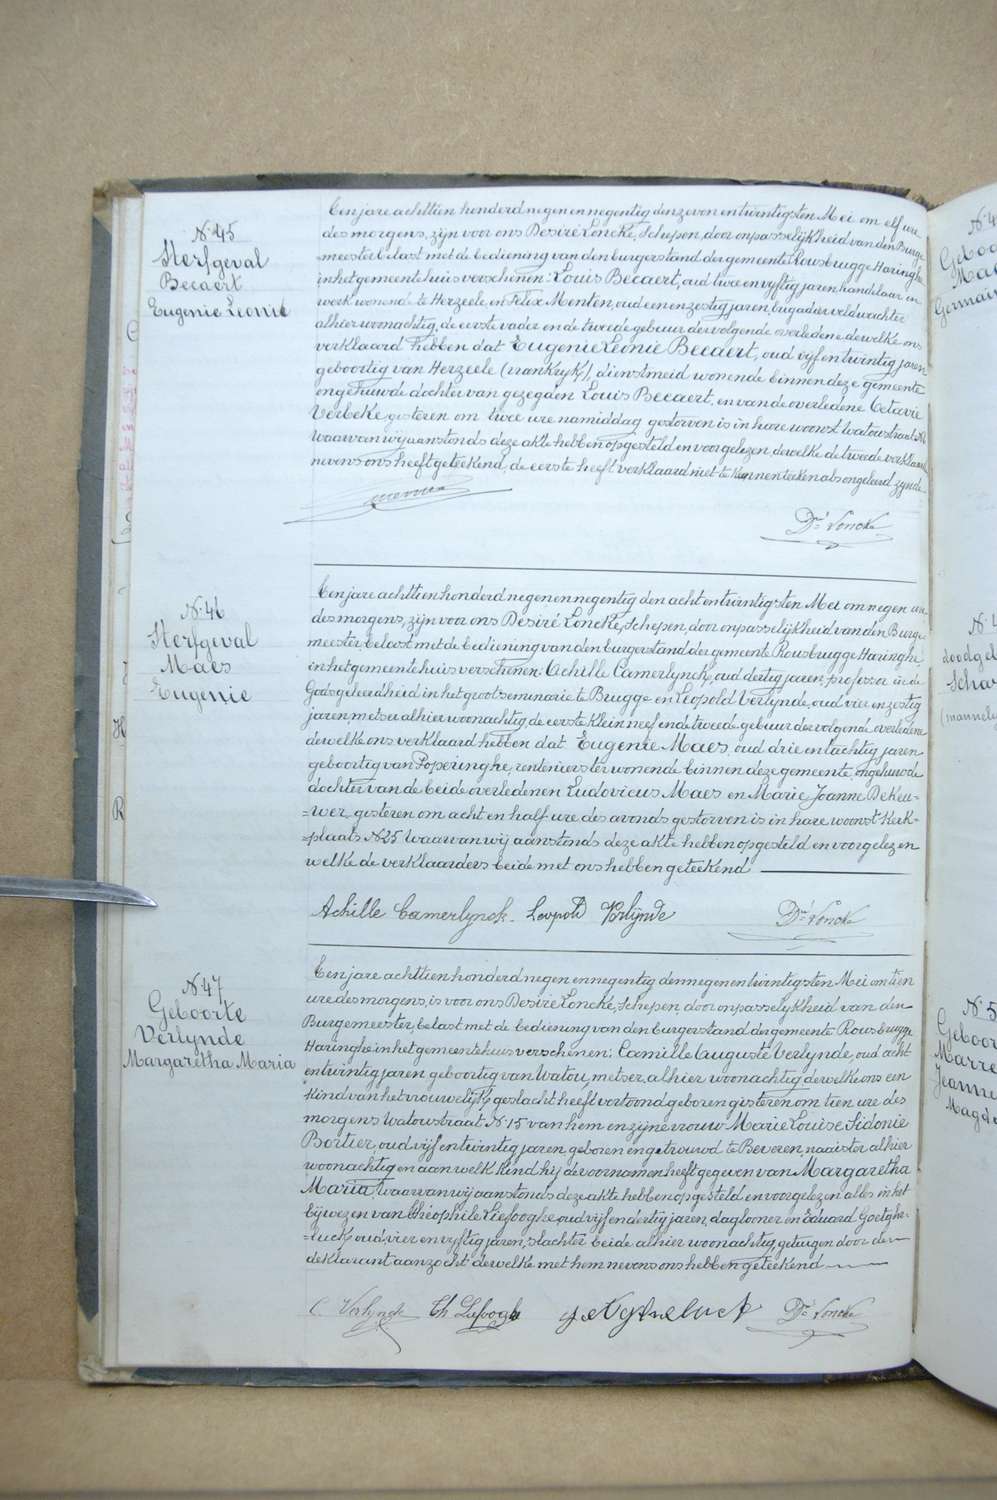 N. 45
Sterfgeval
Becaert
Eugenie Leonie
Een jare achttien honderd negen en negentig den zeven en twintigsten Mei om elf ure
des morgens, zijn voor ons Desiré Loncke, Schepen, door onpasselijkheid van den Burge
meester belast met de bediening van den burgerstand der gemeente Rousbrugge Haringhe
in het gemeentehuis verschenen: Louis Becaert, oud twee en vyftig jaren handelaar in
werk wonende te Herzeele en Felix Menten, oud een en zestig jaren, brigadier veldwachter
alhier woonachtig, de eerste vader en de tweede gebuur der volgende overledene dewelke ons
verklaard hebben dat Eugenie Leonie Becaert, oud vijf en twintig jaren
geboortig van Herzeele (Frankryk), dienstmeid wonende binnen deze gemeente
ongehuwde dochter van gezegden Louis Becaert, en van de overledene Octavie
Verbeke, gisteren om twee ure namiddag gestorven is in hare woonst Watoustraat N.
Waarvan wij aanstonds deze akte hebben opgesteld en voorgelezen, dewelke de tweede verklaarder
nevens ons heeft geteekend, de eerste heeft verklaard niet te kunnen teeken als ongeleerd zynde
Dré Loncke
N. 46
Sterfgeval
Maes
Eugenie
Een jare achttien honderd negen en negentig den acht en twintigsten Mei om negen ure
des morgens, zijn voor ons Desiré Loncke, Schepen, door onpasselijkheid van den Burge-
meester, belast met de bediening van den burgerstand der gemeente Rousbrugge Haringhe,
in het gemeentehuis verschenen: Achille Camerlynck, oud dertig jaren, professor in de
Godsgeleerdheid in het groot seminarie te Brugge en Leopold Verlynde, oud vier en zestig
jaren, metser alhier woonachtig, de eerste kleinneef en de tweede gebuur der volgende overledene
dewelke ons verklaard hebben dat Eugenie Maes, oud drie en tachtig jaren
geboortig van Poperinghe, rentenierster wonende binnen deze gemeente, ongehuwde
dochter van de beide overledenen Ludovicus Maes en Marie Joanne De Keu-
=wer, gisteren om acht en half ure des avonds gestorven is in hare woonst Kerk-
=plaats N. 25 Waarvan wij aanstonds deze akte hebben opgesteld en voorgelezen
welke de verklaarders beide met ons hebben geteekend
Achille Camerlynck. Leopold Verlynde Dré Loncke
N. 47
Geboorte
Verlynde
Margaretha Maria
Een jare achttien honderd negen en negentig den negen en twintigsten Mei om tien
ure des morgens, is voor ons Desiré Loncke, Schepen, door onpasselykheid van den
Burgemeester, belast met de bediening van den burgerstand der gemeente Rousbrugge
Haringhe in het gemeentehuis verschenen: Camille Auguste Verlynde, oud acht
en twintig jaren geboortig van Watou, metser, alhier woonachtig dewelke ons een
kind van het vrouwelijk geslacht heeft vertoond geboren gisteren om tien ure des
morgens Watoustraat N. 15 van hem en zijne vrouw Marie Louise Sidonie
Bortier, oud vijf en twintig jaren, geboren en getrouwd te Beveren, naaister alhier
woonachtig en aan welk kind hij de voornamen heeft gegeven van Margaretha
Maria, waarvan wij aanstonds deze akte hebben opgesteld en voorgelezen alles in het
bijwezen van Théophile Liefooghe, oud vijf en dertig jaren, daglooner en Eduard Goetghe-
=luck, oud vier en vyftig jaren, slachter beide alhier woonachtig, getuigen door den
deklarant aanzocht dewelke met hem nevens ons hebben geteekend
C. Verlynde Th Liefooghe Dré Loncke
N. 4
Germain
N. 4
doodgeb
Scha
(mannely
N. 5
Geboor
Marre
Jeanne
Magde